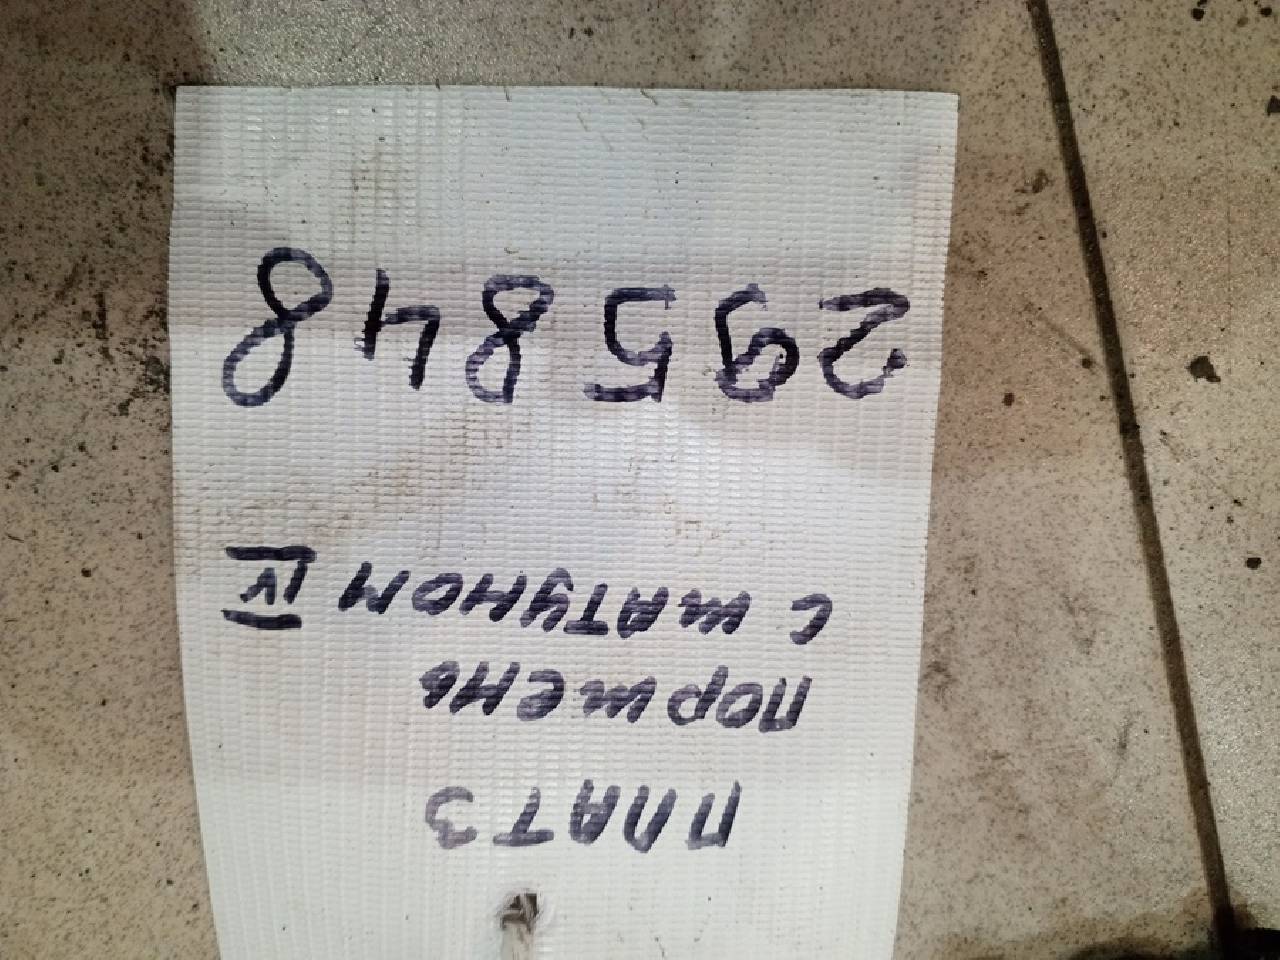 ПЛАТЗ
ПОРШЕНЬ
С ШАТУНОМ IV
295848